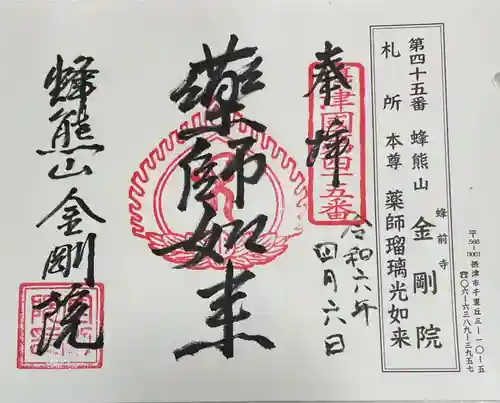 第四十五番 蜂熊山 金剛院
蜂前寺
札所本尊 薬師瑠璃光如来
〒566-0001 摂津市千里丘三ー一〇ー五
☎〇六ー六三八九ー三九五七
奉拝
摂津国第四十五番
令和六年
四月六日
薬師如来
蜂熊山 金剛院